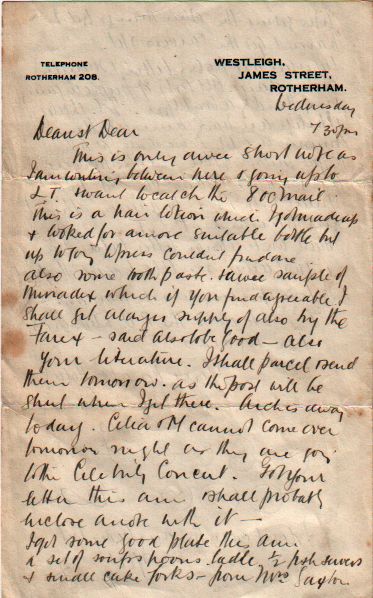 TELEPHONE
ROTHERHAM 208.
WESTLEIGH,
JAMES STREET,
ROTHERHAM.
Wednesday
7 30pm
Dearest Dear
This is only a wee short note as
I am between here & going up to
I want to catch the 8 00 mail.
This is a hair lotion which I got made up
& looked for a more suitable bottle but
up to couldn't find one
also some tooth paste. a wee sample of
which if you find agreeable I
shall get a larger supply of also try the
Farex - said also to be good - also
your literature. I shall parcel & send
them tomorrow. as the post will be
shut when I get there. Archie's away
today. Celia & M cannot come over
tomorrow night as they are going
to the Celebrity Concert. Got your
letter this am & shall probably
enclose a note with it -
I got some good plate this am
a set of soup spoons. ladle, ½ fish servers
& small cake forks - from Mrs Saxton